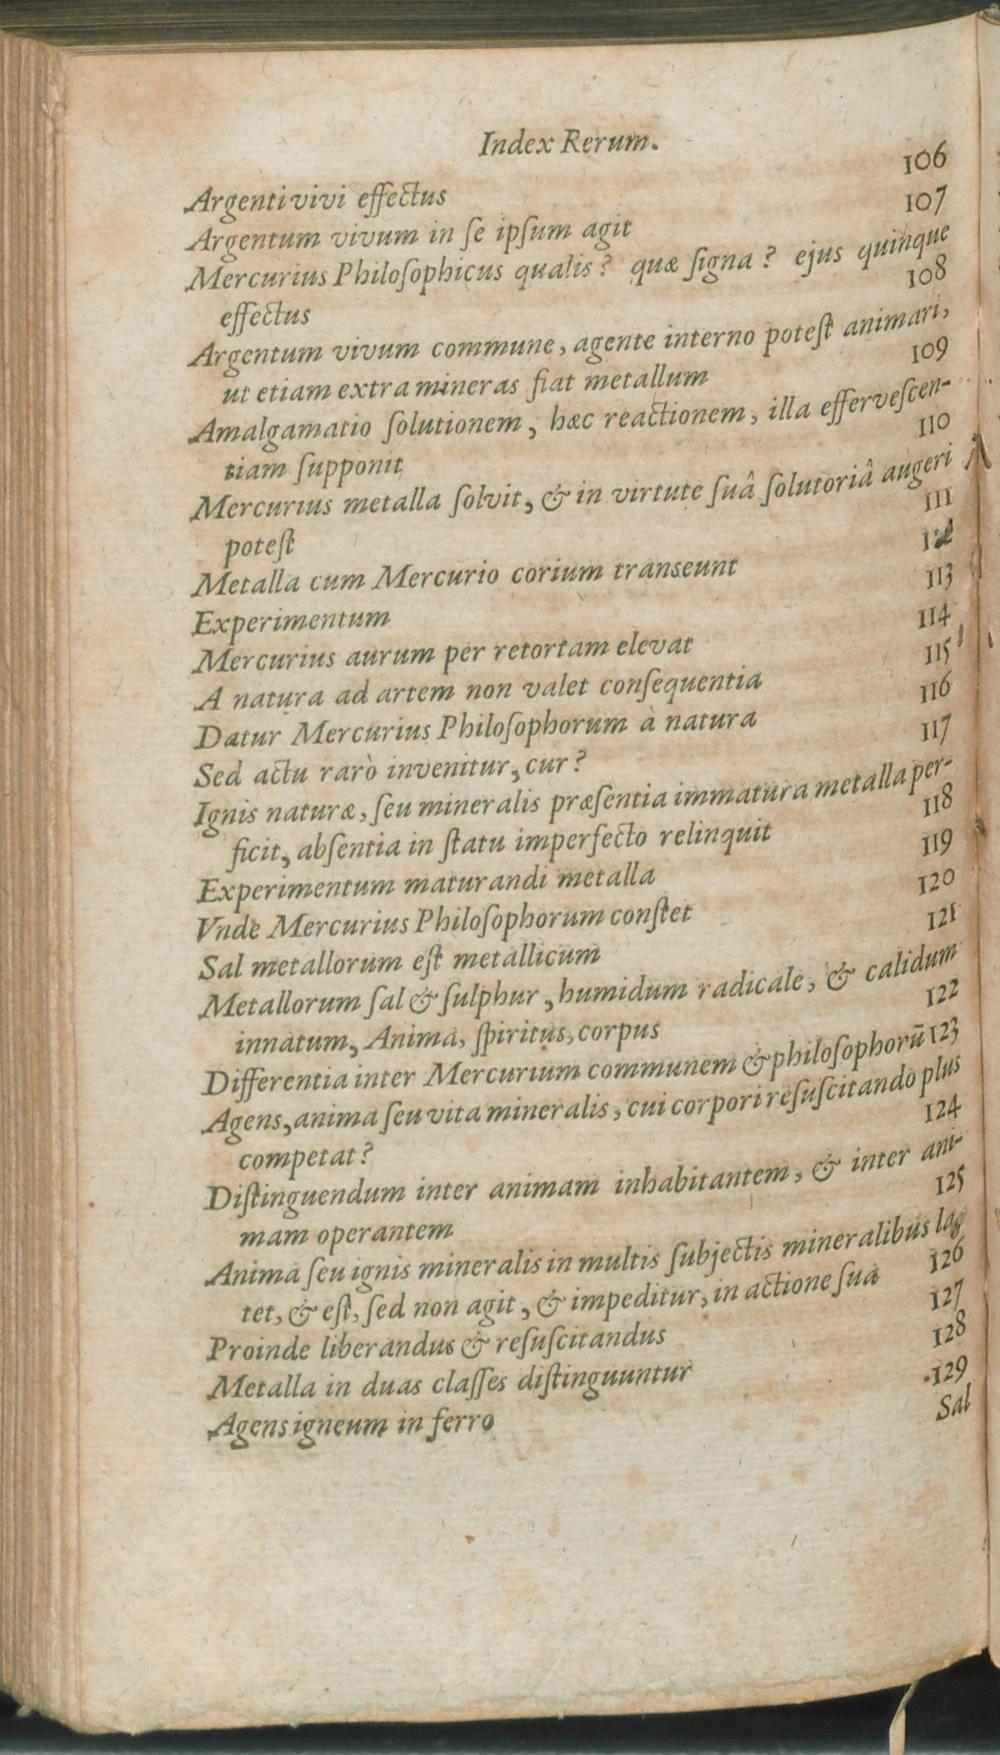 Index Rerum.
Argenti vivi effectus 106
Argentum vivum in ſe ipſum agit 107
Mercurius Philoſophicus qualis? quæ ſigna? ejus quinque
effectus 108
Argentum vivum commune, agente interno poteſt animari,
ut etiam extra mineras fiat metallum 109
Amalgamatio ſolutionem, hæc reactionem, illa efferveſcen-
tiam ſupponit 110
Mercurius metalla ſolvit, & in virtute ſuâ ſolutoriâ augeri
poteſt 111
Metalla cum Mercurio corium transeunt 112
Experimentum 113
Mercurius aurum per retortam elevat 114
A natura ad artem non valet conſequentia 115
Datur Mercurius Philoſophorum à natura 116
Sed actu rarò invenitur, cur? 117
Ignis naturæ, ſeu mineralis præſentia immatura metalla per-
ficit, abſentia in ſtatu imperfecto relinquit 118
Experimentum maturandi metalla 119
Vnde Mercurius Philoſophorum conſtet 120
Sal metallorum eſt metallicum 121
Metallorum ſal & ſulphur, humidum radicale, & calidum
innatum, Anima, ſpiritus, corpus 122
Differentia inter Mercurium communem & philoſophorū 123
Agens, anima ſeu vita mineralis, cui corpori reſuſcitando plus
competat? 124
Diſtinguendum inter animam inhabitantem, & inter ani-
mam operantem 125
Anima ſeu ignis mineralis in multis ſubjectis mineralibus la-
tet, & eſt, ſed non agit, & impeditur, in actione ſua 126
Proinde liberandus & reſuſcitandus 127
Metalla in duas claſſes diſtinguuntur 128
Agens igneum in ferro 129
Sal